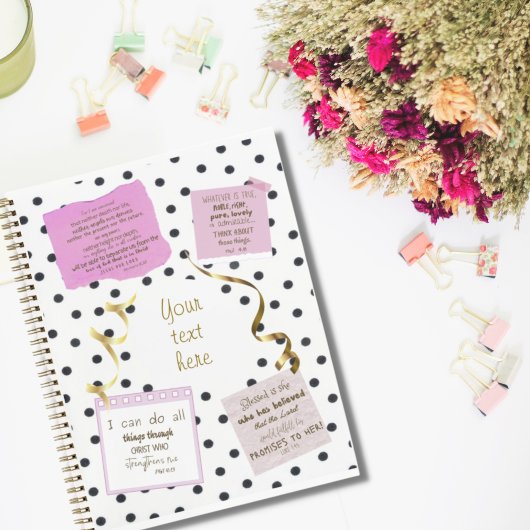 For I am convinced
that neither death nor life,
neither angels nor demons,
neither the present nor the future,
nor any powers,
neither height nor depth,
nor anything else in all creation,
will be able to separate us from the
love of God that is in Christ
JESUS OUR LORD
WHATEVER IS TRUE,
NOBLE, RIGHT,
pure, lovely
or admirable...
THINK ABOUT
these things.
PHIL 4:8
Your
text
here
I can do all
things through
CHRIST WHO
strengthens me
PHIL 4:13
Blessed is she
who has believed
that the Lord
would fulfill his
PROMISES TO HER!
LUKE 1:45